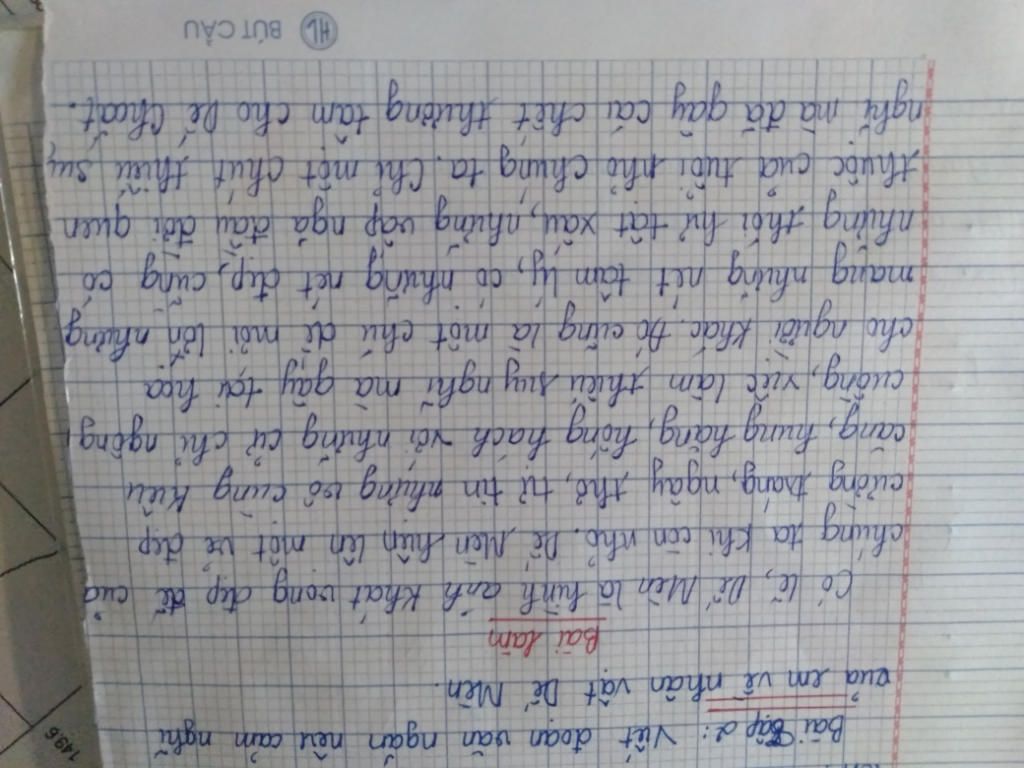 Bài tập 2: Viết đoạn văn ngắn nêu cảm nghĩ
của em về nhân vật Dế Mèn.
Bài làm
Có lẽ, Dế Mèn là hình ảnh khát vọng đẹp đẽ của
chúng ta khi còn nhỏ. Dế Mèn hiện lên một vẻ đẹp
cường tráng, ngây thơ, tự tin nhưng vô cùng kiêu
căng, hung hăng, hống hách với những cử chỉ ngông
cuồng, việc làm thiếu suy nghĩ mà gây tai họa
cho người khác. Đó cũng là một chú dế mới lớn nhưng
mang những nét tâm lý, có những nét đẹp, cũng có
những thói hư tật xấu, những vấp ngã đầu đời quen
thuộc của tuổi nhỏ chúng ta. Chỉ một chút thiếu suy
nghĩ mà đã gây cái chết thương tâm cho Dế Choắt.
HL BÚT CÂU
1496